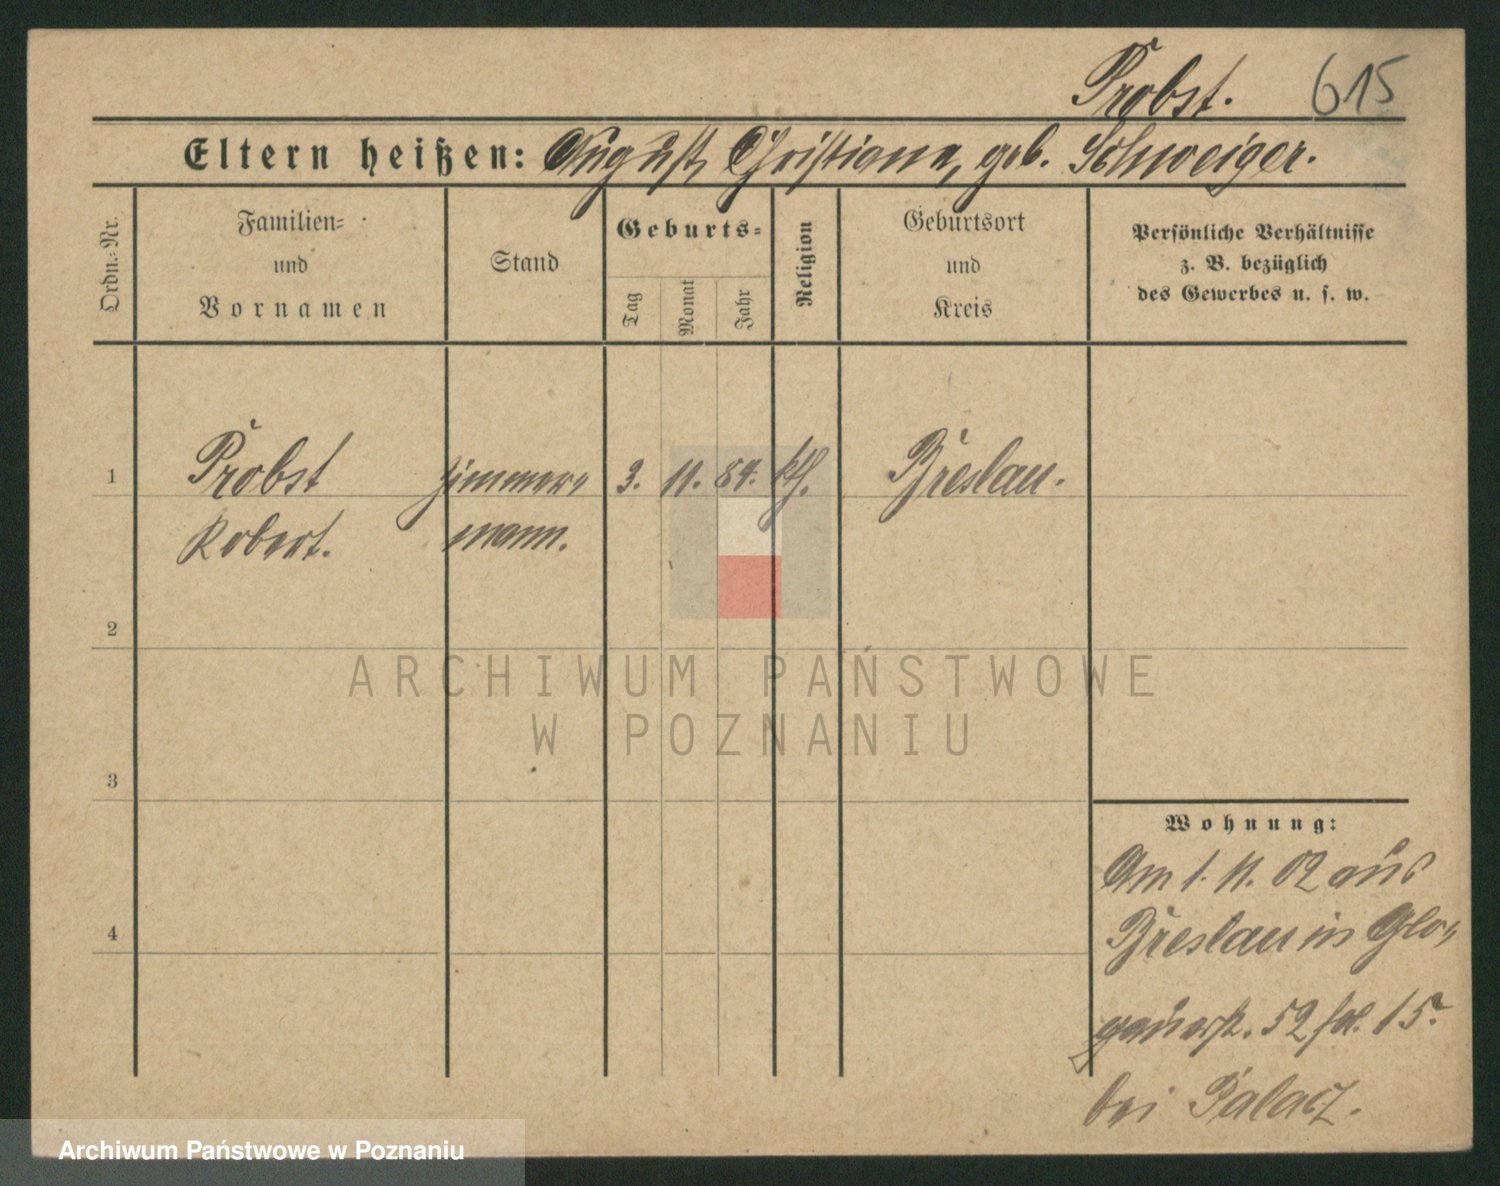 Probst. 615
Eltern heißen: August, Christiana, geb. Schweiger.
Ordn.-Nr.
Familien-
und
Vornamen
Stand
Geburts-
Tag
Monat
Jahr
Religion
Geburtsort
und
Kreis
Persönliche Verhältnisse
z. B. bezüglich
des Gewerbes u. s. w.
1 Probst Zimmer- 3. 11. 84. kth. Breslau.
Robert. mann.
2
ARCHIWUM PAŃSTWOWE
W POZNANIU
3
Wohnung:
Am 1. 11. 02 aus
4 Breslau in Glo-
gauerstr. 52 15.
bei Palacz.
Archiwum Państwowe w Poznaniu